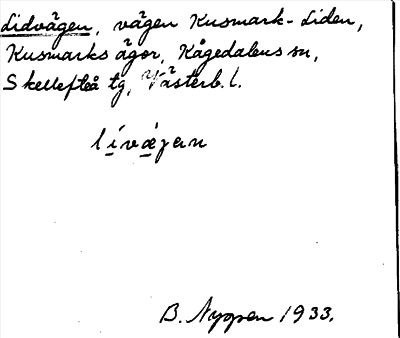 Lidvägen, vägen Kusmark-Liden,
Kusmarks ägor, Kågedalens sn,
Skellefteå tg, Västerb. l.
lívǽgen
B. Nygren 1933.